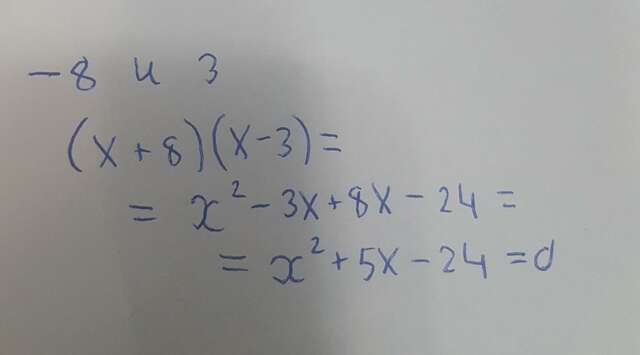 -8 и 3
(x+8)(x-3)=
= x² - 3x + 8x - 24 =
= x² + 5x - 24 = 0